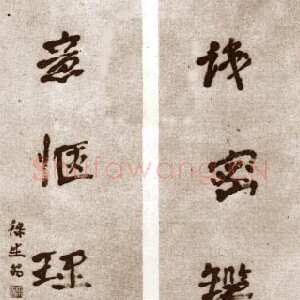 識密鑑
意愜理
徐生翁
Shufawang.CN